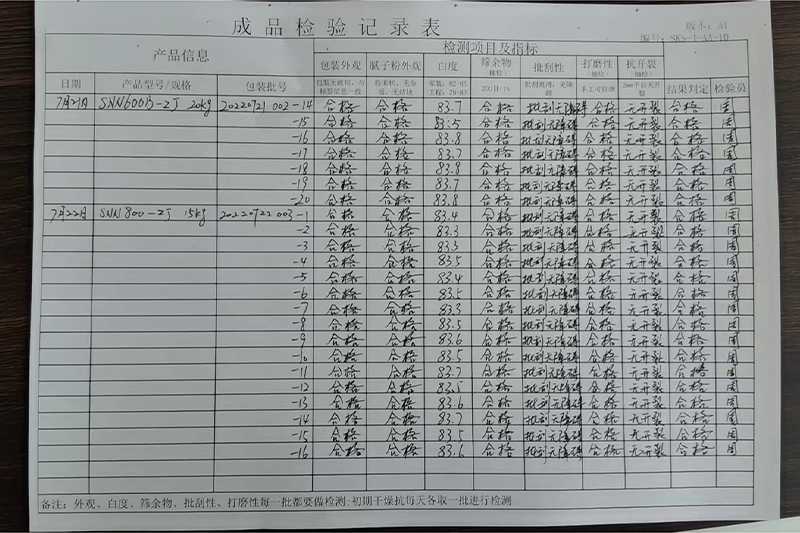 成品检验记录表
版本：A1
编号：SKS-J-AA-10
产品信息 检测项目及指标
日期 产品型号/规格 包装批号 包装外观 腻子粉外观 白度 筛余物(抽检) 批刮性 打磨性(抽检) 抗开裂(抽检) 结果判定 检验员
7月21日 SNN600B-2J 20kg 20220721 002-14 合格 合格 83.7 合格 批刮无障碍 合格 无开裂 合格 周
-15 合格 合格 83.5 合格 批刮无障碍 合格 无开裂 合格 周
-16 合格 合格 83.8 合格 批刮无障碍 合格 无开裂 合格 周
-17 合格 合格 83.7 合格 批刮无障碍 合格 无开裂 合格 周
-18 合格 合格 83.8 合格 批刮无障碍 合格 无开裂 合格 周
-19 合格 合格 83.7 合格 批刮无障碍 合格 无开裂 合格 周
-20 合格 合格 83.8 合格 批刮无障碍 合格 无开裂 合格 周
7月22日 SNN800-2J 15kg 20220722 003-1 合格 合格 83.4 合格 批刮无障碍 合格 无开裂 合格 周
-2 合格 合格 83.3 合格 批刮无障碍 合格 无开裂 合格 周
-3 合格 合格 83.3 合格 批刮无障碍 合格 无开裂 合格 周
-4 合格 合格 83.5 合格 批刮无障碍 合格 无开裂 合格 周
-5 合格 合格 83.4 合格 批刮无障碍 合格 无开裂 合格 周
-6 合格 合格 83.5 合格 批刮无障碍 合格 无开裂 合格 周
-7 合格 合格 83.3 合格 批刮无障碍 合格 无开裂 合格 周
-8 合格 合格 83.5 合格 批刮无障碍 合格 无开裂 合格 周
-9 合格 合格 83.6 合格 批刮无障碍 合格 无开裂 合格 周
-10 合格 合格 83.5 合格 批刮无障碍 合格 无开裂 合格 周
-11 合格 合格 83.7 合格 批刮无障碍 合格 无开裂 合格 周
-12 合格 合格 83.5 合格 批刮无障碍 合格 无开裂 合格 周
-13 合格 合格 83.6 合格 批刮无障碍 合格 无开裂 合格 周
-14 合格 合格 83.7 合格 批刮无障碍 合格 无开裂 合格 周
-15 合格 合格 83.5 合格 批刮无障碍 合格 无开裂 合格 周
-16 合格 合格 83.6 合格 批刮无障碍 合格 无开裂 合格 周
备注：外观、白度、筛余物、批刮性、打磨性每一批都要做检测;初期干燥抗每天各取一批进行检测